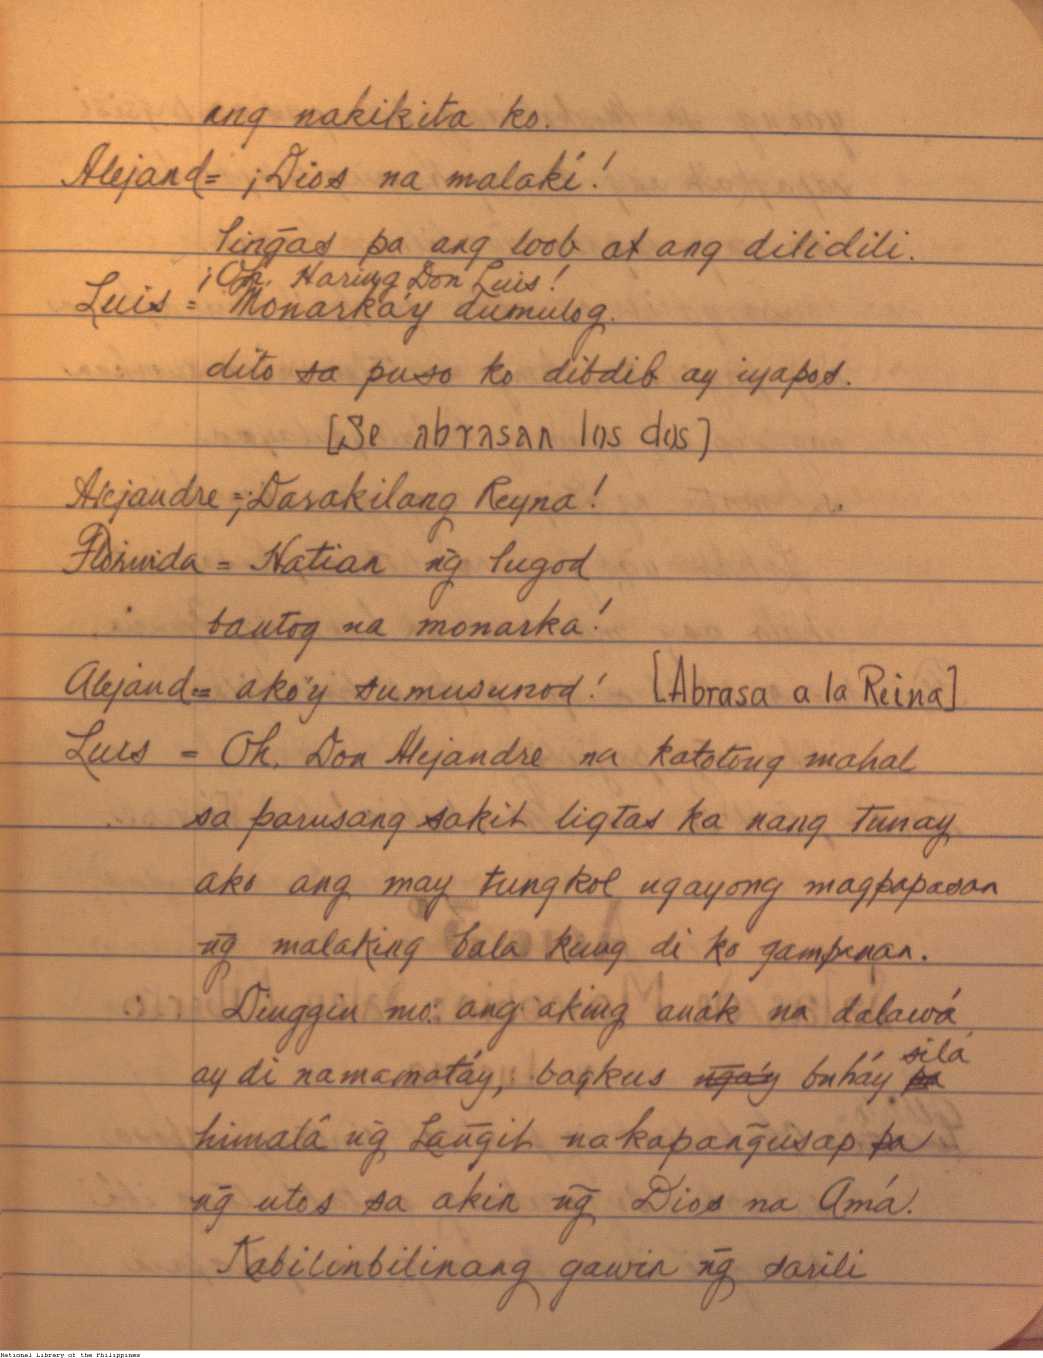 ang nakikita ko.
Alejand= ¡Dios na malaki!
ling̃as pa ang loob at ang dilidili.
¡Oh, Haring Don Luis!
Luis = Monarka'y dumulog.
dito sa puso ko dibdib ay iyapos.
[Se abrasan los dos]
Alejandre = ¡Darakilang Reyna!
Florinida = Natian n͠g lugod
bantog na monarka!
Alejand= ako'y sumusunod! [Abrasa a la Reina]
Luis = Oh, Don Alejandre na katotong mahal
sa parusang sakit ligtas ka nang tunay
ako ang may tungkol ngayong magpapasan
n͠g malaking bala kung di ko gampanan.
Dinggin mo: ang aking anák na dalawá
ay di namamatáy, bagkus n͠ga'y buháy pa silá
himalâ n͠g Lan͠git nakapan͠gusap pa
n͠g utos sa akin n͠g Dios na Amá.
Kabilinbilinang gawin n͠g sarili
National Library of the Philippines